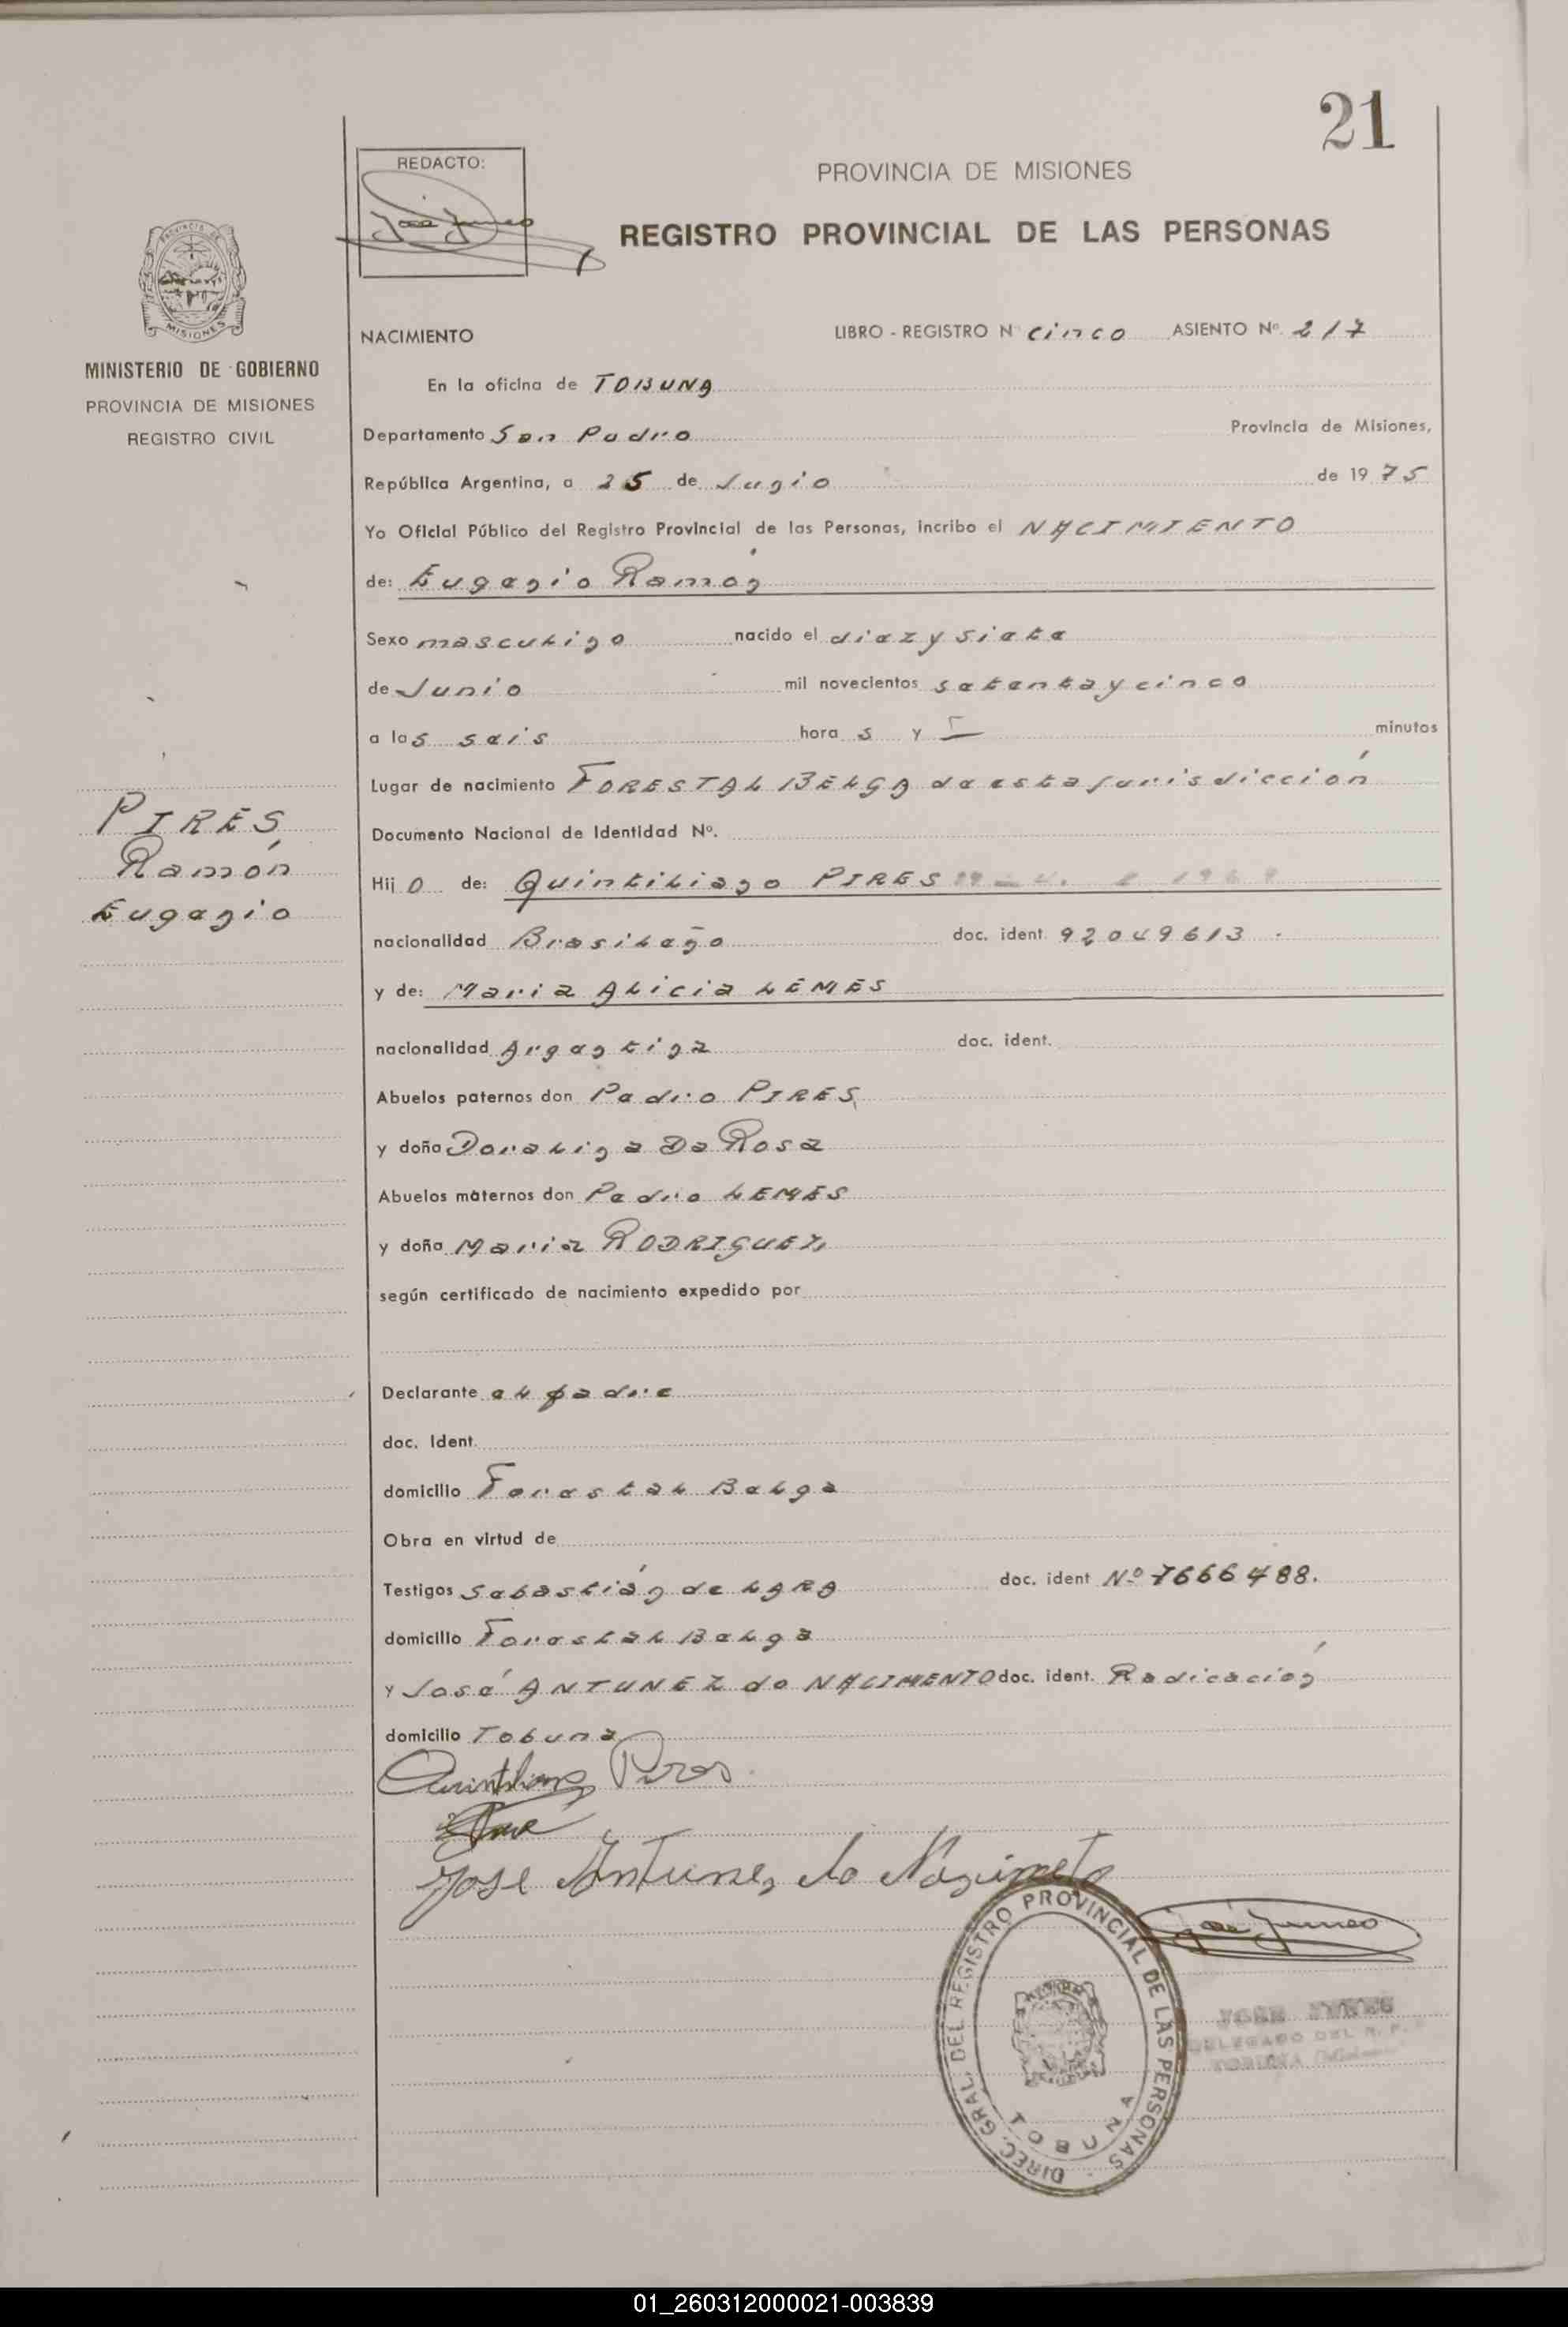 21
REDACTO:
PROVINCIA DE MISIONES
REGISTRO PROVINCIAL DE LAS PERSONAS
MISIONES
MINISTERIO DE GOBIERNO
PROVINCIA DE MISIONES
REGISTRO CIVIL
NACIMIENTO LIBRO - REGISTRO N cinco ASIENTO Nº 217
En la oficina de TOBUNA
Departamento San Pedro Provincia de Misiones,
República Argentina, a 25 de Junio de 19 75
Yo Oficial Público del Registro Provincial de las Personas, incribo el NACIMIENTO
de: Eugenio Ramón
Sexo masculino nacido el diez y siete
de Junio mil novecientos setenta y cinco
a las seis hora s y minutos
Lugar de nacimiento FORESTAL BELGA de esta jurisdicción
PIRES
Ramón
Eugenio
Documento Nacional de Identidad Nº.
Hij o de: Quintiliano PIRES
nacionalidad Brasileño doc. ident. 92049613
y de: Maria Alicia LEMES
nacionalidad Argentina doc. ident.
Abuelos paternos don Pedro PIRES
y doña Doralina Da Rosa
Abuelos maternos don Pedro LEMES
y doña Maria RODRIGUEZ
según certificado de nacimiento expedido por
Declarante el padre
doc. Ident.
domicilio Forestal Belga
Obra en virtud de
Testigos Sebastián de LARA doc. ident Nº 7666488.
domicilio Forestal Belga
y José ANTUNEZ do NACIMENTO doc. ident. Radicación
domicilio Tobuna
Quintiliano Pires
Jose Antunes do Nasimeto
DIREC. GRAL. DEL REGISTRO PROVINCIAL DE LAS PERSONAS
TOBUNA
JOSE
DELEGADO DEL R. P.
TOBUNA
01_260312000021-003839